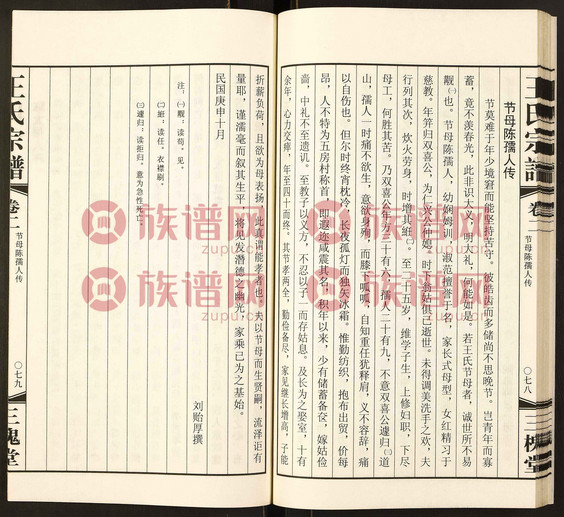 王氏宗谱
卷二
节母陈孺人传
〇七八
三槐堂
节母陈孺人传
节莫难于年少境窘而能坚持苦守。彼皓首而多储尚不思晚节。岂青年而寡
蓄，竟不羡春光，此非识大义，明大礼，何能如是。若王氏节母者，诚世所不易
觏㈠也。节母陈孺人，幼娴姆训，淑范擅于名，家长式母型，女红精习于
慈教。年笄归双喜公，为仁兴公仲媳。时下翁姑俱已逝世。未得调美洗手之欢，夫
行列其次，炊火劳身，时增其絍㈡。至二十五岁，维学子生，上修妇职，下尽
母工，何胜其苦。乃双喜公年方二十有六，孺人二十有九，不意双喜公遽归㈢道
山，孺人一时痛不欲生，意欲身殉，而膝下呱呱，自知重任犹释肩，义不容辞，痛
以自伤也。但尔时终宵枕冷，长夜孤灯而独矢冰霜。惟勤纺织，抱布出贸，价每
昂，人不特为五房村称首，即遐迩咸震其名，积年以来，少有储蓄备奁，嫁姑俭
啬，中礼不至遗讥。至教子以义方，不以己仅次子，而存姑息。及长为之娶室，十有
余年，心力交瘁，年至四十而终。其节孝两全，勤俭备尽，家见继长增高，子能
折薪负荷，且欲为母表扬，此真谓能孝者也。夫以节母而生贤嗣，流泽讵有
量耶，谨濡毫而叙其生平，将见发潜德之幽光，家乘已为之基始。
刘贻厚撰
民国庚申十月
注：㈠觏：读苟。见。
㈡絍：读任。衣襟刷。
㈢遽归：读拒归。意为急性死亡。
王氏宗谱
卷二
节母陈孺人传
〇七九
三槐堂
族谱网
www.zupu.cn
族谱网
www.zupu.cn
族谱网
www.zupu.cn
族谱网
www.zupu.cn